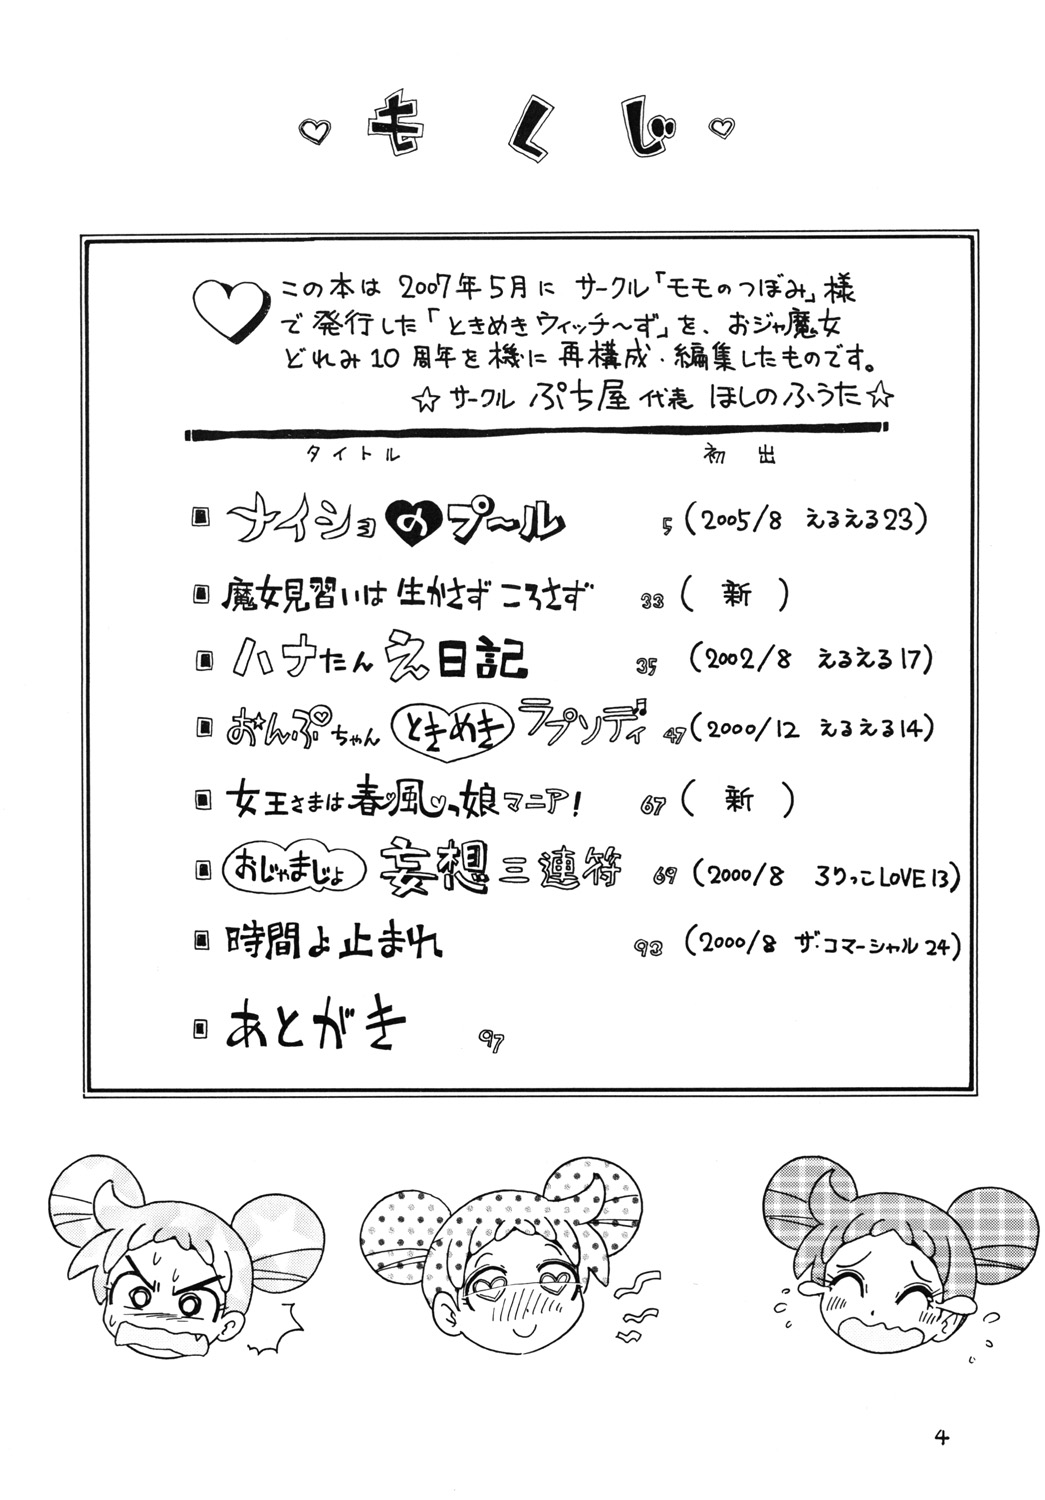 もくじ
この本は 2007年5月に サークル「モモのつぼみ」様
で 発行した「ときめきウィッチ〜ず」を、おジャ魔女
どれみ10周年を機に 再構成・編集したものです。
☆サークル ぷち屋 代表 ほしのふうた☆
タイトル 初出
ナイショのプ〜ル 5 (2005/8 えるえる23)
魔女見習いは 生かさず ころさず 33 ( 新 )
ハナたん え日記 35 (2002/8 えるえる17)
おんぷちゃん ときめき ラプソディ 47 (2000/12 えるえる14)
女王さまは春風っ娘マニア! 67 ( 新 )
おじゃまじょ 妄想 三連符 69 (2000/8 ろりっこLOVE13)
時間よ止まれ 93 (2000/8 ザ・コマーシャル24)
あとがき 97
4